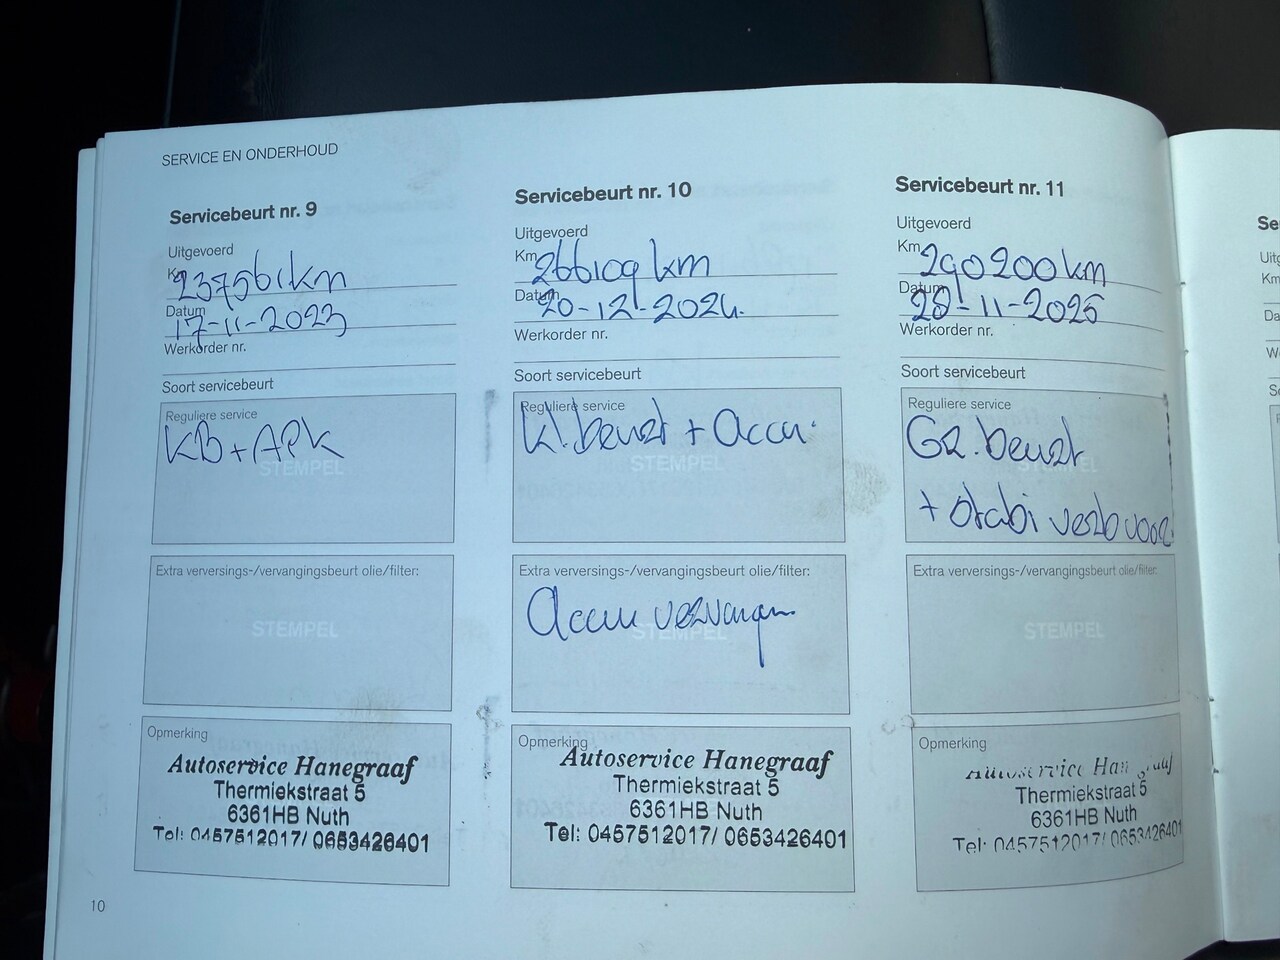 SERVICE EN ONDERHOUD
Servicebeurt nr. 9
Uitgevoerd
Km 237561km
Datum 17-11-2023
Werkorder nr.
Soort servicebeurt
Reguliere service
KB+APK
STEMPEL
Extra verversings-/vervangingsbeurt olie/filter:
STEMPEL
Opmerking
Autoservice Hanegraaf
Thermiekstraat 5
6361HB Nuth
Tel: 0457512017/ 0653426401
Servicebeurt nr. 10
Uitgevoerd
Km 266109 km
Datum 20-12-2024.
Werkorder nr.
Soort servicebeurt
Reguliere service
Kl. beurt + Accu.
STEMPEL
Extra verversings-/vervangingsbeurt olie/filter:
Accu vervangen
STEMPEL
Opmerking
Autoservice Hanegraaf
Thermiekstraat 5
6361HB Nuth
Tel: 0457512017/ 0653426401
Servicebeurt nr. 11
Uitgevoerd
Km 290200km
Datum 28-11-2025
Werkorder nr.
Soort servicebeurt
Reguliere service
Gr. beurt
STEMPEL
+ stabi verb voor.
Extra verversings-/vervangingsbeurt olie/filter:
STEMPEL
Opmerking
Autoservice Hanegraaf
Thermiekstraat 5
6361HB Nuth
Tel: 0457512017/ 0653426401
10
Se
Uitg
Km
Da
We
So